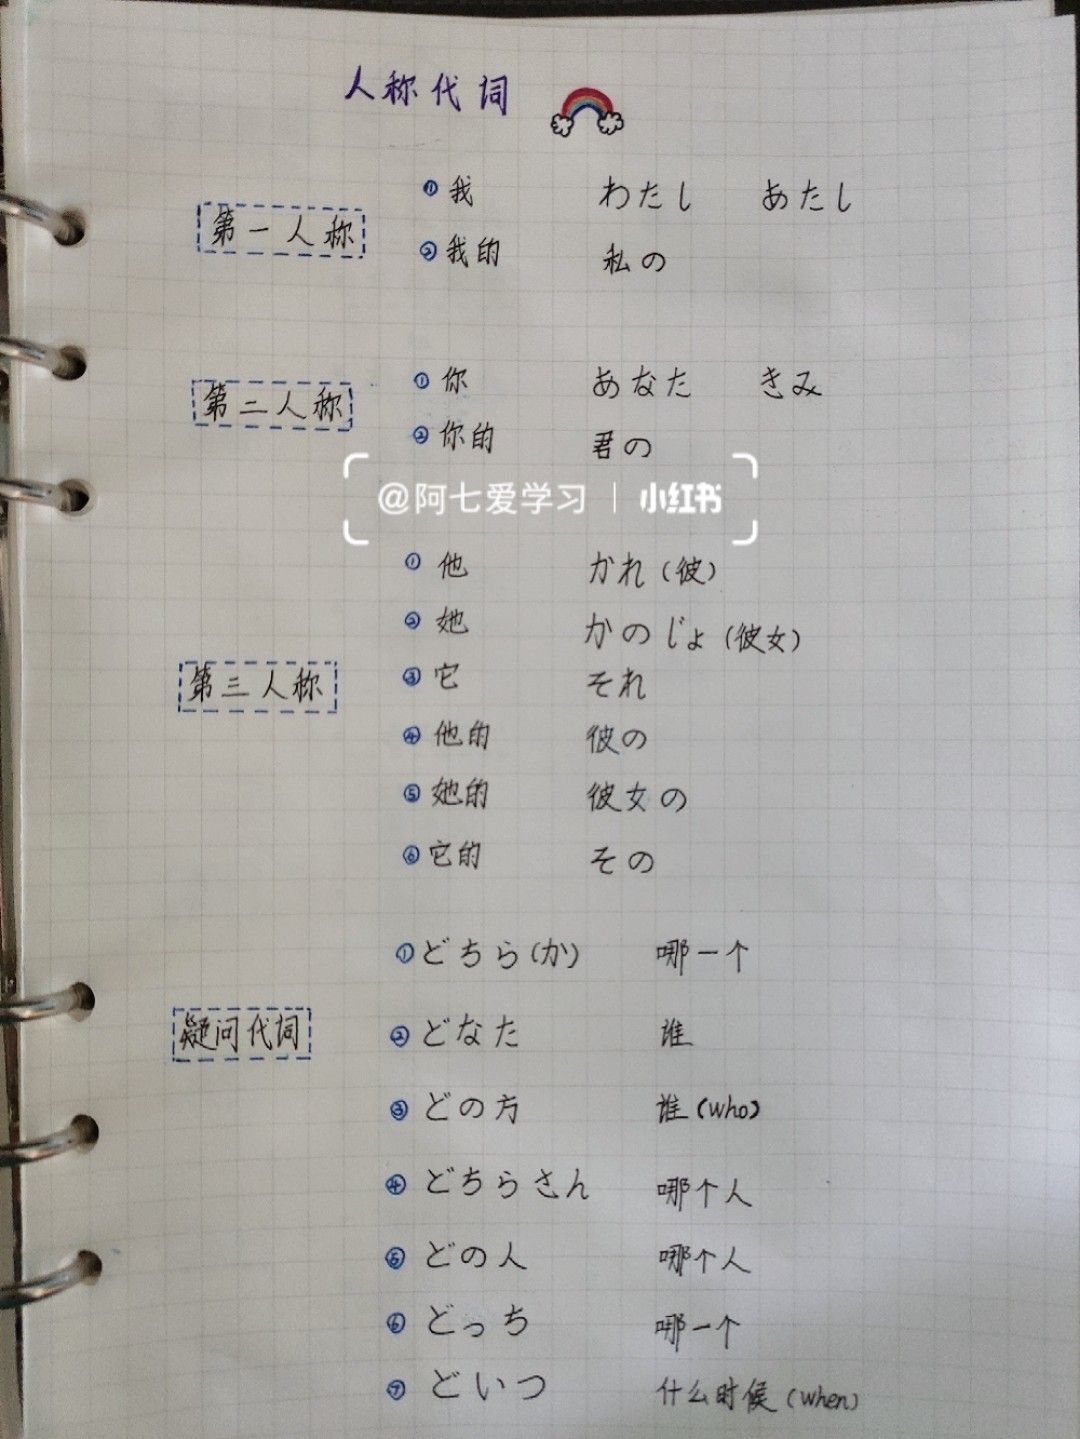 人称代词
第一人称
①我 わたし あたし
②我的 私の
第二人称
①你 あなた きみ
②你的 君の
@阿七爱学习 | 小红书
第三人称
①他 かれ（彼）
②她 かのじょ（彼女）
③它 それ
④他的 彼の
⑤她的 彼女の
⑥它的 その
疑问代词
①どちら(か) 哪一个
②どなた 谁
③どの方 谁（who）
④どちらさん 哪个人
⑤どの人 哪个人
⑥どっち 哪一个
⑦どいつ 什么时候（when）